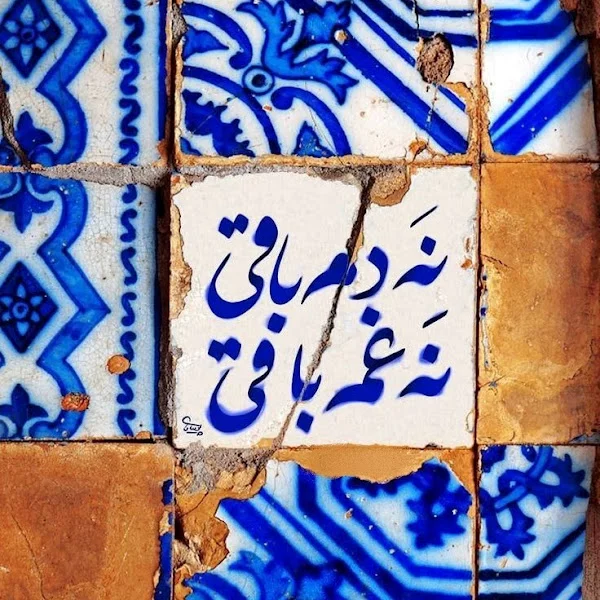 نَه دم باقی
نَه غم باقی